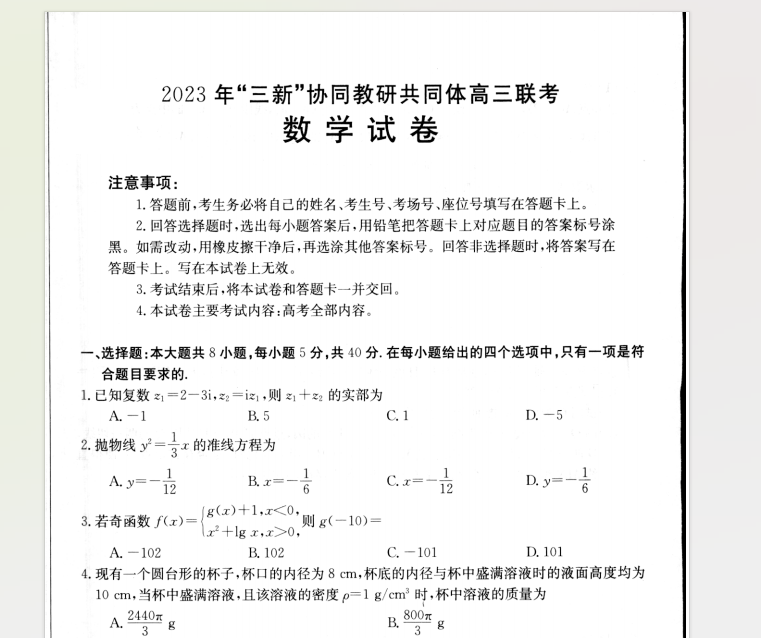 2023 年“三新”协同教研共同体高三联考
数 学 试 卷
注意事项:
1. 答题前,考生务必将自己的姓名、考生号、考场号、座位号填写在答题卡上。
2. 回答选择题时,选出每小题答案后,用铅笔把答题卡上对应题目的答案标号涂
黑。如需改动,用橡皮擦干净后,再选涂其他答案标号。回答非选择题时,将答案写在
答题卡上。写在本试卷上无效。
3. 考试结束后,将本试卷和答题卡一并交回。
4. 本试卷主要考试内容:高考全部内容。
一、选择题:本大题共 8 小题,每小题 5 分,共 40 分. 在每小题给出的四个选项中,只有一项是符
合题目要求的.
1. 已知复数 z₁=2-3i,z₂=iz₁,则 z₁+z₂ 的实部为
A. -1 B. 5 C. 1 D. -5
2. 抛物线 y²=1/3x 的准线方程为
A. y=-1/12 B. x=-1/6 C. x=-1/12 D. y=-1/6
3. 若奇函数 f(x)={g(x)+1,x<0, x²+lg x,x>0, 则 g(-10)=
A. -102 B. 102 C. -101 D. 101
4. 现有一个圆台形的杯子,杯口的内径为 8 cm,杯底的内径与杯中盛满溶液时的液面高度均为
10 cm,当杯中盛满溶液,且该溶液的密度 ρ=1 g/cm³ 时,杯中溶液的质量为
A. 2440π/3 g B. 800π/3 g